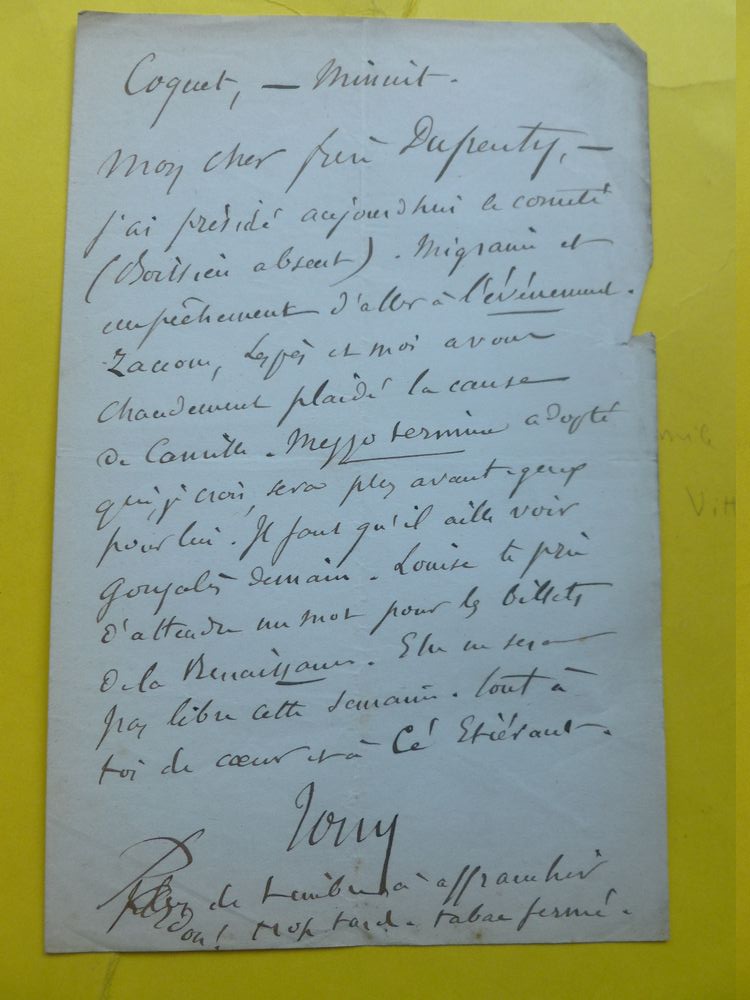 Coquet, — Minuit.
Mon cher frère Dupeuty, —
j'ai présidé aujourd'hui le comité
(Boissieu absent). Migraine et
empêchement d'aller à l'événement.
Zaccone, Lespès et moi avons
chaudement plaidé la cause
de Camille. Mezzo termine adopté
qui, je crois, sera plus avantageux
pour lui. Il faut qu'il aille voir
Gonzalès demain. Louise te prie
d'attendre un mot pour les billets
de la Renaissance. Elle ne sera
pas libre cette semaine. tout à
toi de cœur et à Cé
Tony
de timbres à affranchir
trop tard. tabac fermé.
Vitt